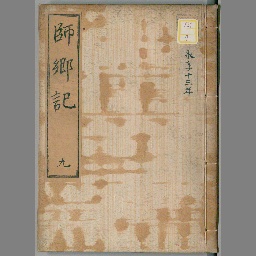 永享十三年
師郷記
九